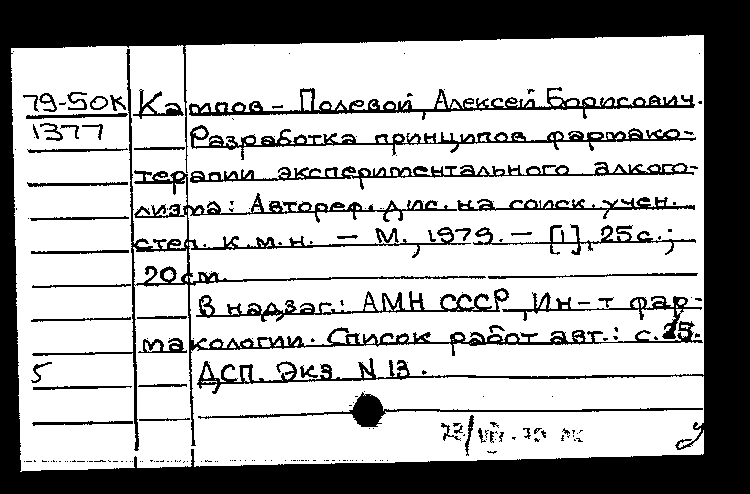 79-50К Кампов-Полевой, Алексей Борисович.
1377 Разработка принципов фармако-
терапии экспериментального алкого-
лизма: Автореф. дис. на соиск. учен.
степ. к.м.н. — М., 1979. — [1], 25 с.;
20 см.
В надзаг.: АМН СССР, Ин-т фар-
макологии. Список работ авт.: с. 25.
5 ДСП. Экз. N 13.